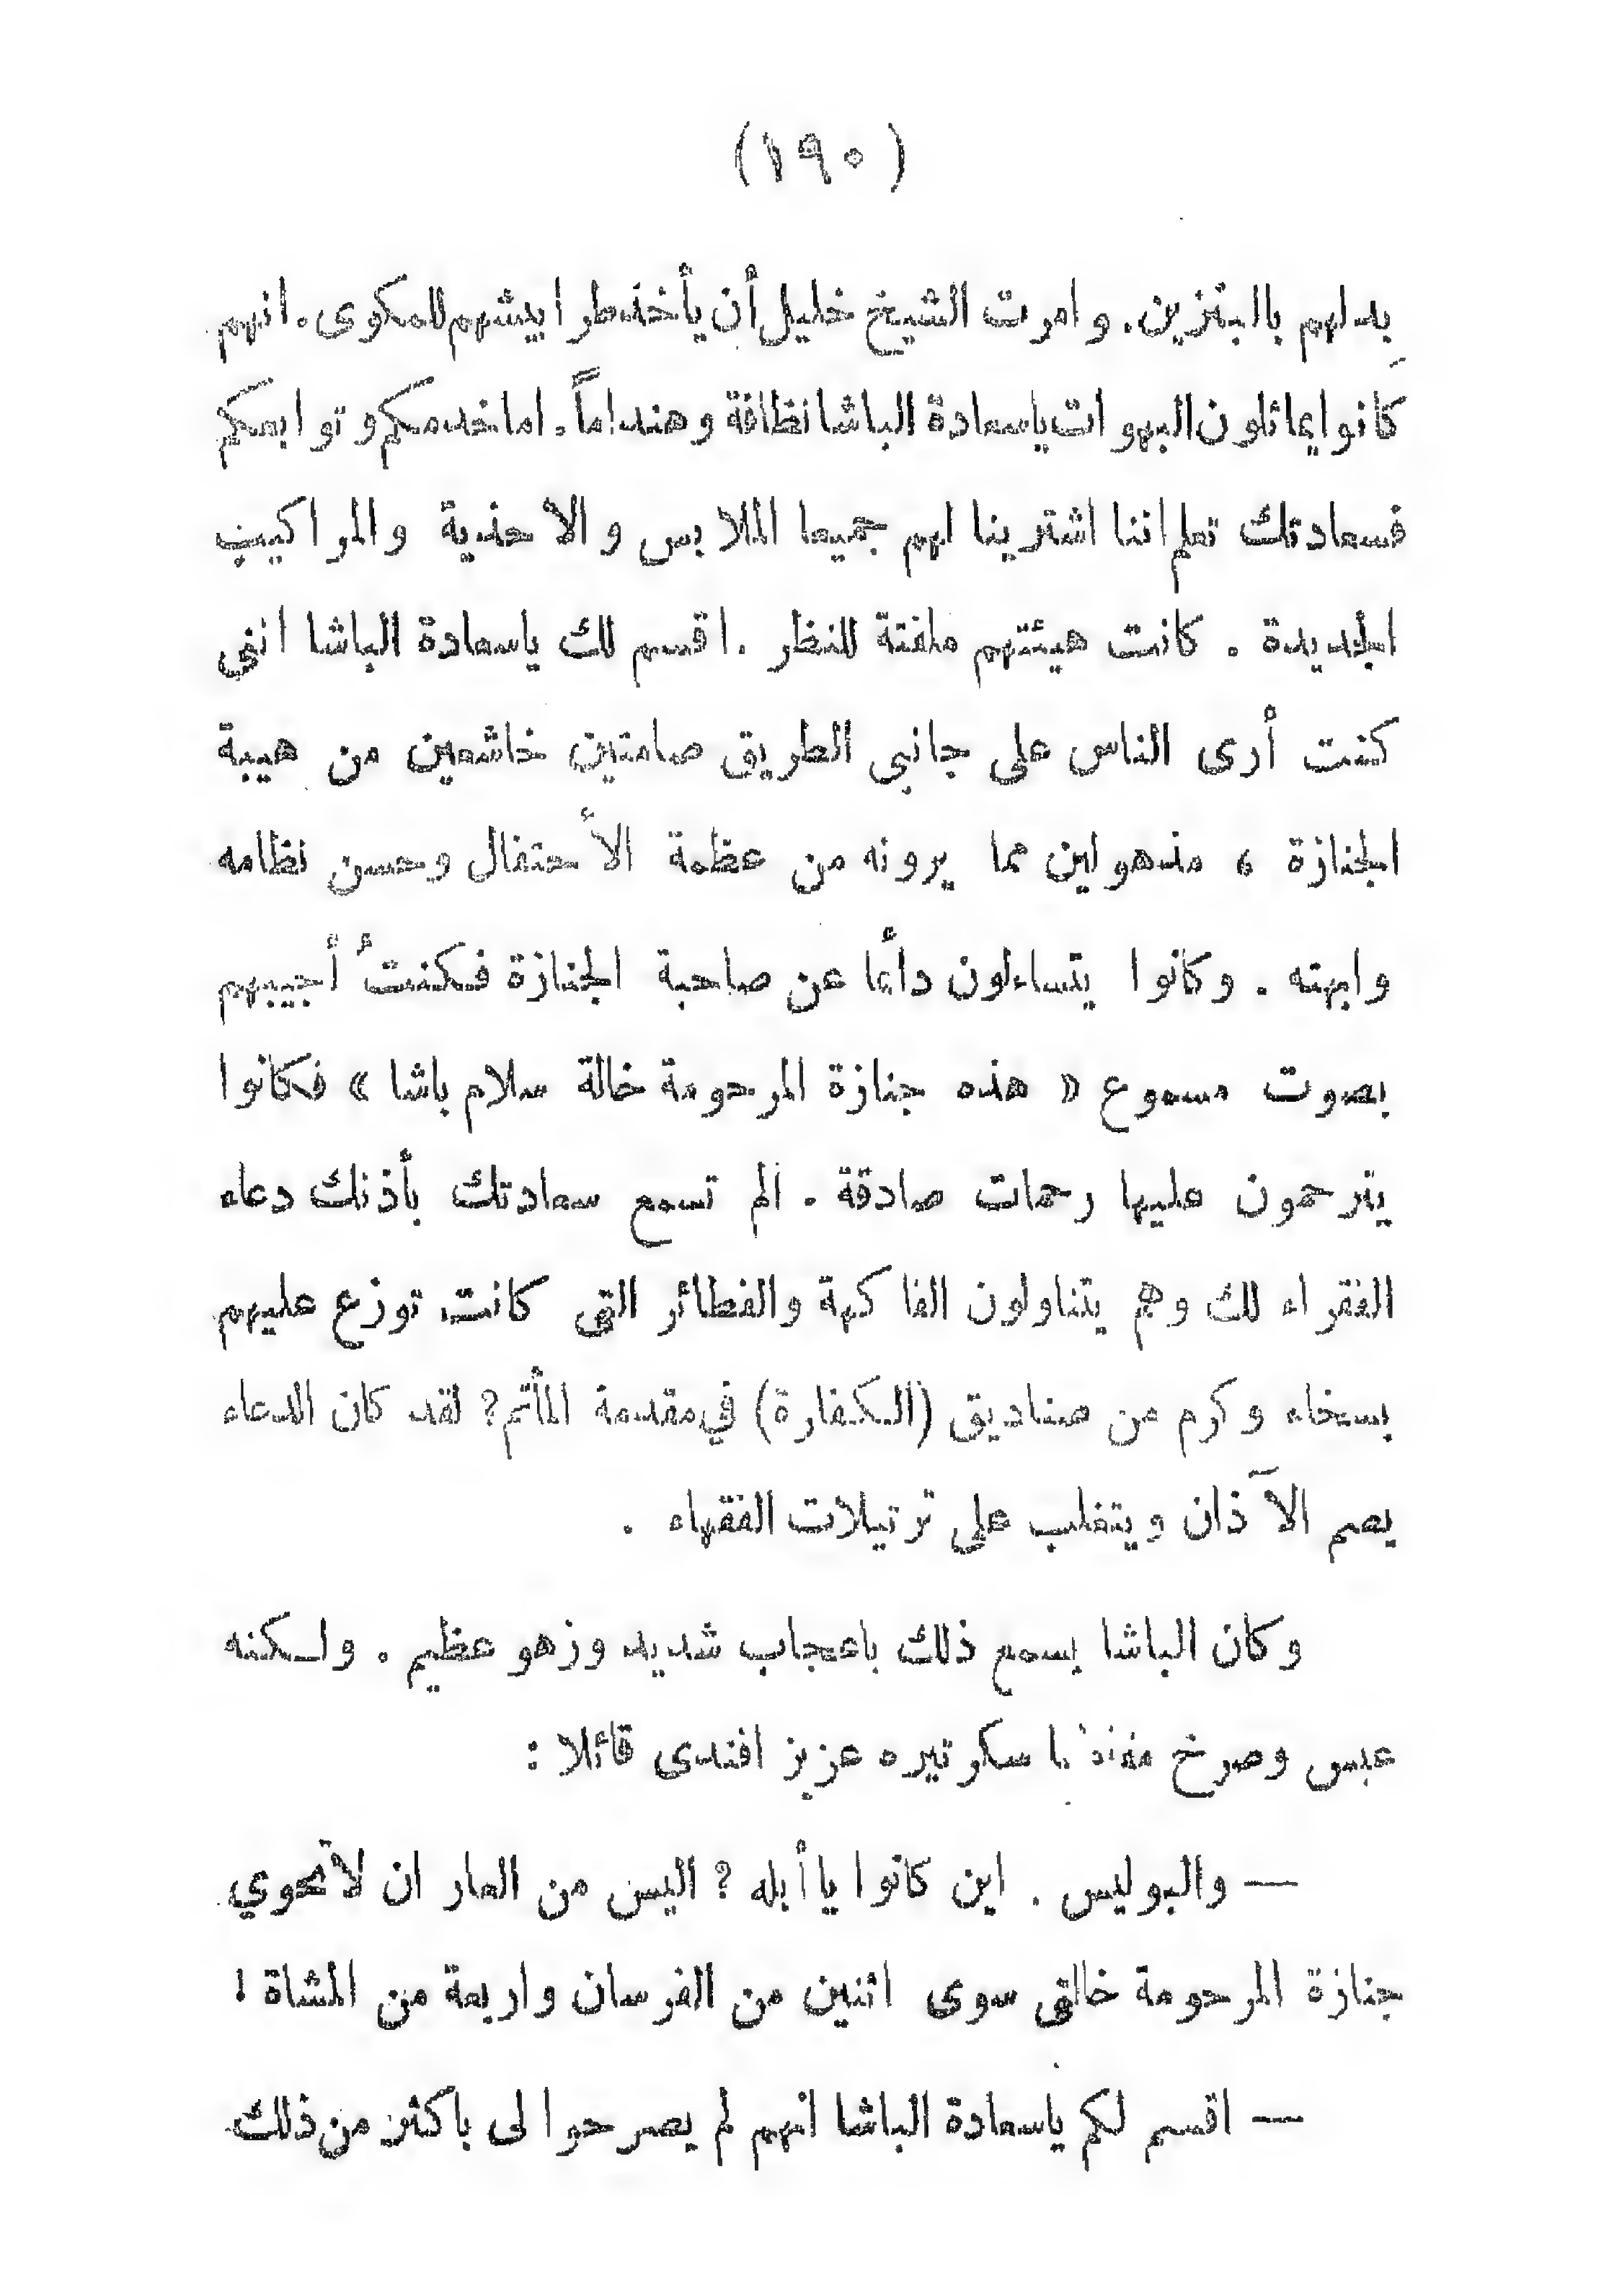 (١٩٠)
بدلهم بالبنزين. وامرت الشيخ خليل أن يأخذ طرابيشهم للمكوى. انهم
كانوا يماثلون البهوات ياسعادة الباشا نظافة وهنداماً. اما خدمكم وتوابعكم
فسعادتك تعلم اننا اشترينا لهم جميعا الملابس والاحذية والمراكيب
الجديدة . كانت هيئتهم ملفتة للنظر . اقسم لك ياسعادة الباشا انني
كنت أرى الناس على جانبي الطريق صامتين خاشعين من هيبة
الجنازة ، مذهولين مما يرونه من عظمة الأحتفال وحسن نظامه
وابهته . وكانوا يتساءلون دأمًا عن صاحبة الجنازة فكنتُ أجيبهم
بصوت مسموع « هذه جنازة المرحومة خالة سلام باشا » فكانوا
يترحمون عليها رحمات صادقة . الم تسمع سعادتك بأذنك دعاء
الفقراء لك وهم يتناولون الفاكهة والفطائر التى كانت توزع عليهم
بسخاء وكرم من صناديق (الكفارة) في مقدمة المأتم؟ لقد كان الدعاء
يصم الآذان ويتغلب على ترتيلات الفقهاء .
وكان الباشا يسمع ذلك باعجاب شديد وزهو عظيم . ولكنه
عبس وصرخ سكرتيره عزيز افندى قائلا :
— والبوليس . اين كانوا يا أبله ؟ اليس من العار ان لاتحوي
جنازة المرحومة خالتى سوى اثنين من الفرسان واربعة من المشاة !
— اقسم لكم ياسعادة الباشا انهم لم يصرحوا لى باكثر من ذلك